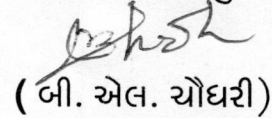 ( બી. એલ. ચૌધરી)